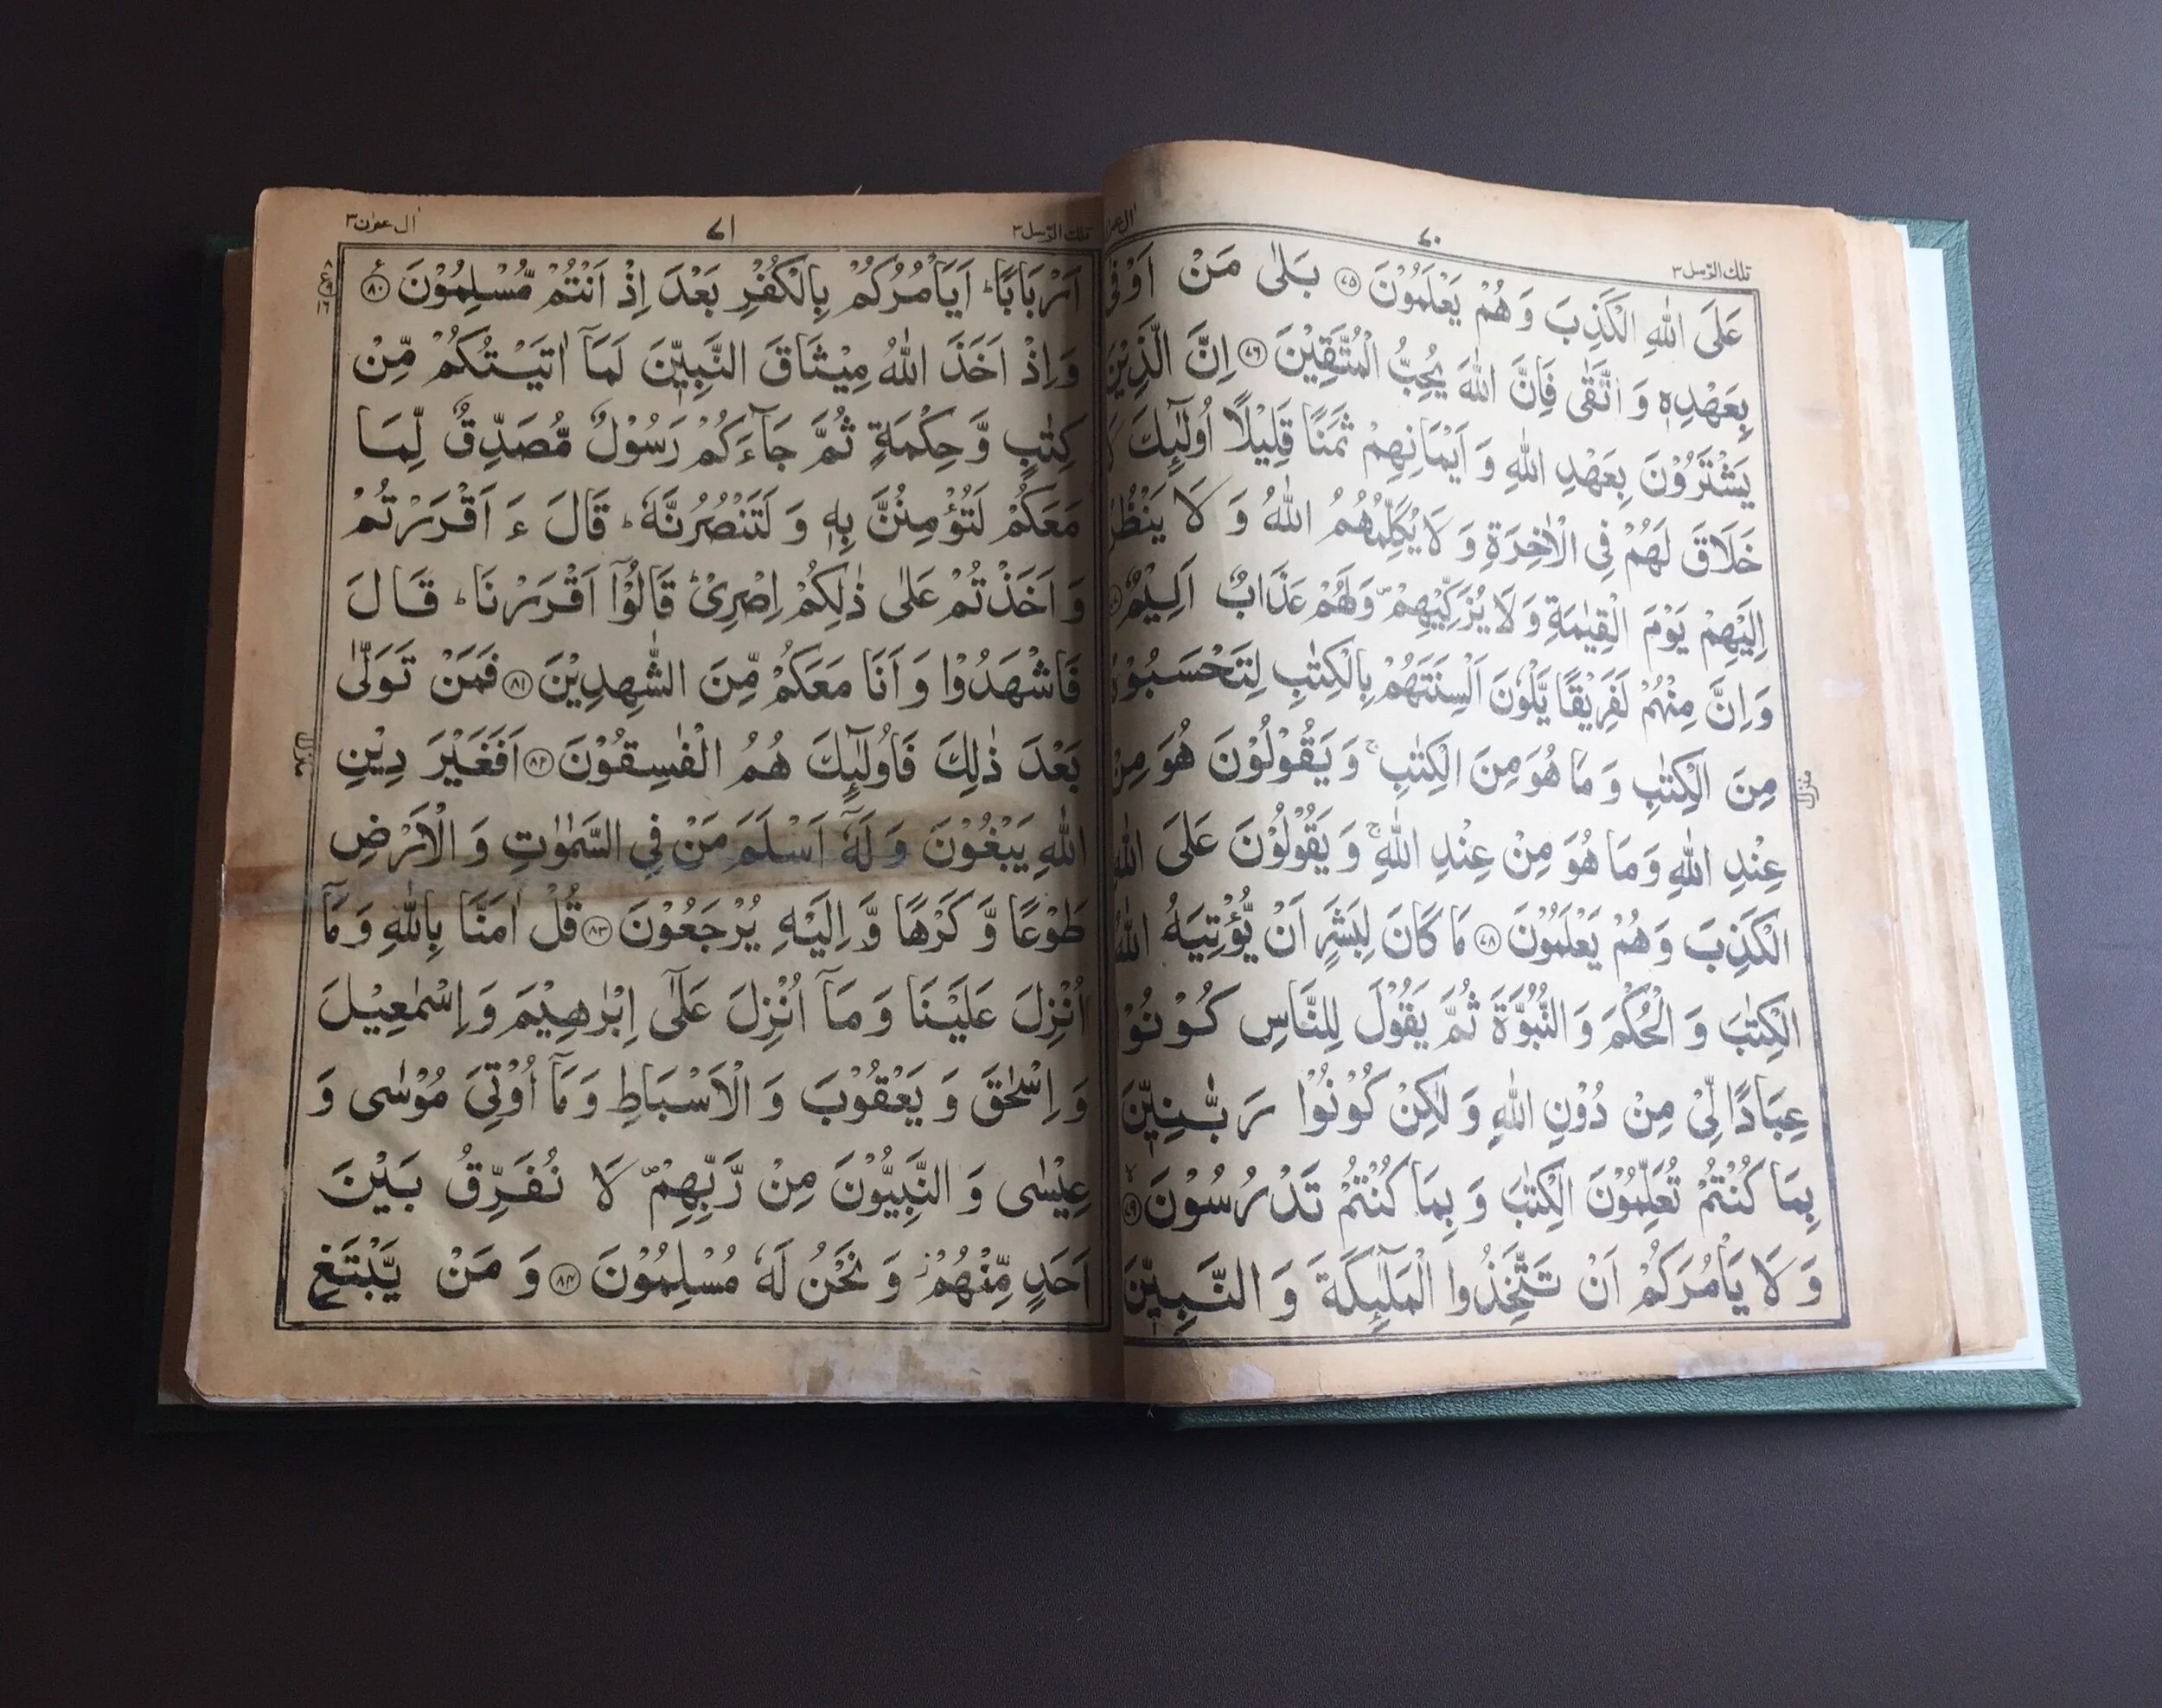 تلك الرّسل ٣
٧٠
عَلَى اللّٰهِ الْكَذِبَ وَ هُمْ يَعْلَمُوْنَ ۝٧٥ بَلٰى مَنْ اَوْفٰى
بِعَهْدِهٖ وَ اتَّقٰى فَاِنَّ اللّٰهَ يُحِبُّ الْمُتَّقِيْنَ ۝٧٦ اِنَّ الَّذِيْنَ
يَشْتَرُوْنَ بِعَهْدِ اللّٰهِ وَ اَيْمَانِهِمْ ثَمَنًا قَلِيْلًا اُولٰٓئِكَ لَا
خَلَاقَ لَهُمْ فِى الْاٰخِرَةِ وَ لَا يُكَلِّمُهُمُ اللّٰهُ وَ لَا يَنْظُرُ
اِلَيْهِمْ يَوْمَ الْقِيٰمَةِ وَ لَا يُزَكِّيْهِمْ ۪ وَ لَهُمْ عَذَابٌ اَلِيْمٌ
وَ اِنَّ مِنْهُمْ لَفَرِيْقًا يَّلْوٗنَ اَلْسِنَتَهُمْ بِالْكِتٰبِ لِتَحْسَبُوْهُ
مِنَ الْكِتٰبِ وَ مَا هُوَ مِنَ الْكِتٰبِ ۚ وَ يَقُوْلُوْنَ هُوَ مِنْ
عِنْدِ اللّٰهِ وَ مَا هُوَ مِنْ عِنْدِ اللّٰهِ ۚ وَ يَقُوْلُوْنَ عَلَى اللّٰهِ
الْكَذِبَ وَ هُمْ يَعْلَمُوْنَ ۝٧٨ مَا كَانَ لِبَشَرٍ اَنْ يُّؤْتِيَهُ اللّٰهُ
الْكِتٰبَ وَ الْحُكْمَ وَ النُّبُوَّةَ ثُمَّ يَقُوْلَ لِلنَّاسِ كُوْنُوْا
عِبَادًا لِّىْ مِنْ دُوْنِ اللّٰهِ وَ لٰكِنْ كُوْنُوْا رَبّٰنِيّٖنَ
بِمَا كُنْتُمْ تُعَلِّمُوْنَ الْكِتٰبَ وَ بِمَا كُنْتُمْ تَدْرُسُوْنَ ۝٧٩
وَ لَا يَاْمُرَكُمْ اَنْ تَتَّخِذُوا الْمَلٰٓئِكَةَ وَ النَّبِيّٖنَ
منزل
تلك الرّسل ٣
٧١
اٰل عمرٰن ٣
اَرْبَابًا ؕ اَيَاْمُرُكُمْ بِالْكُفْرِ بَعْدَ اِذْ اَنْتُمْ مُّسْلِمُوْنَ ۝٨٠
وَ اِذْ اَخَذَ اللّٰهُ مِيْثَاقَ النَّبِيّٖنَ لَمَاۤ اٰتَيْتُكُمْ مِّنْ
كِتٰبٍ وَّ حِكْمَةٍ ثُمَّ جَآءَكُمْ رَسُوْلٌ مُّصَدِّقٌ لِّمَا
مَعَكُمْ لَتُؤْمِنُنَّ بِهٖ وَ لَتَنْصُرُنَّهٗ ؕ قَالَ ءَ اَقْرَرْتُمْ
وَ اَخَذْتُمْ عَلٰى ذٰلِكُمْ اِصْرِىْ ؕ قَالُوْۤا اَقْرَرْنَا ؕ قَالَ
فَاشْهَدُوْا وَ اَنَا مَعَكُمْ مِّنَ الشّٰهِدِيْنَ ۝٨١ فَمَنْ تَوَلّٰى
بَعْدَ ذٰلِكَ فَاُولٰٓئِكَ هُمُ الْفٰسِقُوْنَ ۝٨٢ اَفَغَيْرَ دِيْنِ
اللّٰهِ يَبْغُوْنَ وَ لَهٗۤ اَسْلَمَ مَنْ فِى السَّمٰوٰتِ وَ الْاَرْضِ
طَوْعًا وَّ كَرْهًا وَّ اِلَيْهِ يُرْجَعُوْنَ ۝٨٣ قُلْ اٰمَنَّا بِاللّٰهِ وَ مَاۤ
اُنْزِلَ عَلَيْنَا وَ مَاۤ اُنْزِلَ عَلٰۤى اِبْرٰهِيْمَ وَ اِسْمٰعِيْلَ
وَ اِسْحٰقَ وَ يَعْقُوْبَ وَ الْاَسْبَاطِ وَ مَاۤ اُوْتِىَ مُوْسٰى وَ
عِيْسٰى وَ النَّبِيُّوْنَ مِنْ رَّبِّهِمْ ۪ لَا نُفَرِّقُ بَيْنَ
اَحَدٍ مِّنْهُمْ ؗ وَ نَحْنُ لَهٗ مُسْلِمُوْنَ ۝٨٤ وَ مَنْ يَّبْتَغِ
منزل